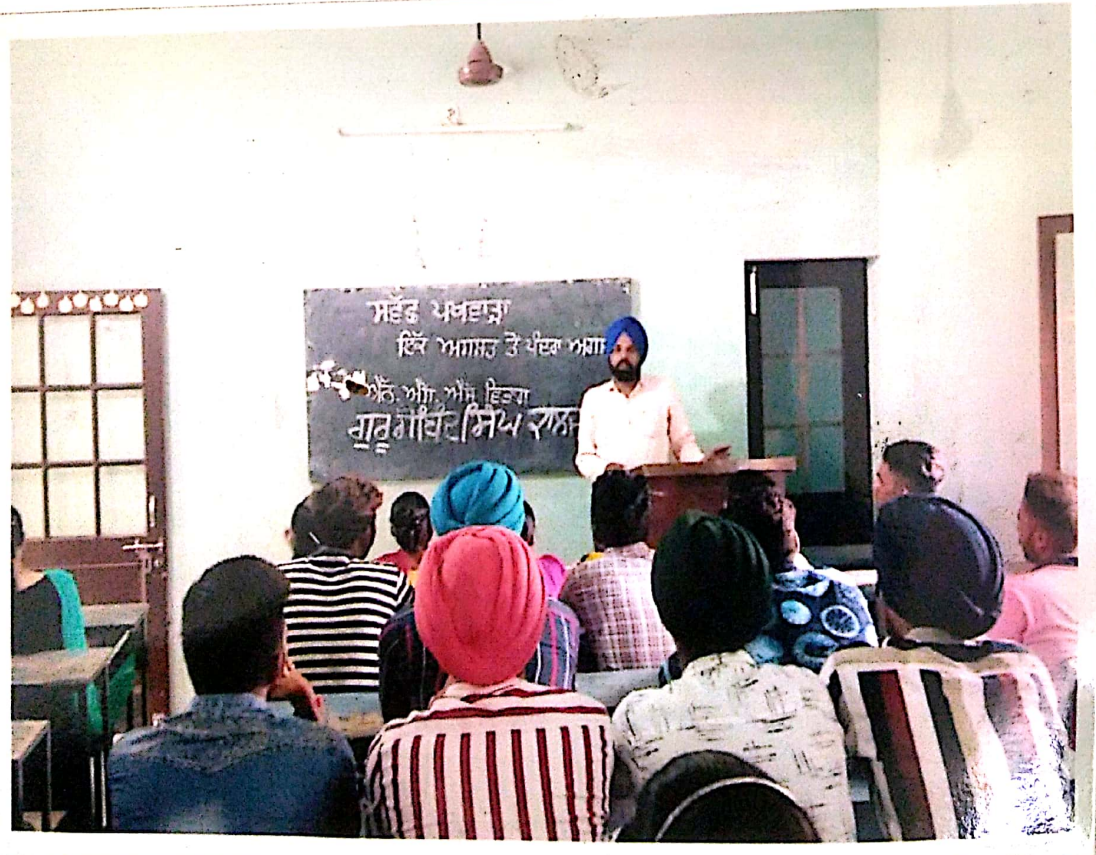 ਸਵੱਛ ਪਖਵਾੜਾ
ਇੱਕ ਅਗਸਤ ਤੋਂ ਪੰਦਰਾ
ਐੱਨ. ਐੱਸ. ਐੱਸ ਵਿਭਾਗ
ਗੁਰੂ ਗੋਬਿੰਦ ਸਿੰਘ